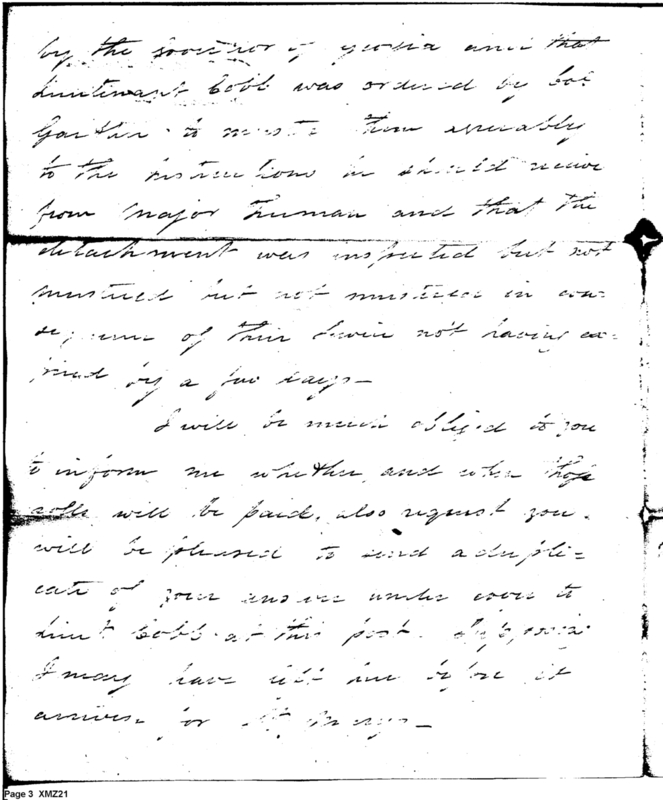 by the Governor of Georgia and that
Lieutenant Cobb was ordered by Col
Gaither to muster them agreeably
to the instructions he should receive
from Major Freeman and that the
detachment was inspected but not
mustered but not mustered in con-
sequence of their Service not having ex=
pired by a few days—
I will be much obliged to you
to inform me whether, and when those
rolls will be paid, also request you
will be pleased to send a dupli=
cate of your answer under cover to
Lieut Cobb at this post. Supposing
I may have left here before it
arrives for St. Marys—
Page 3 XMZ21